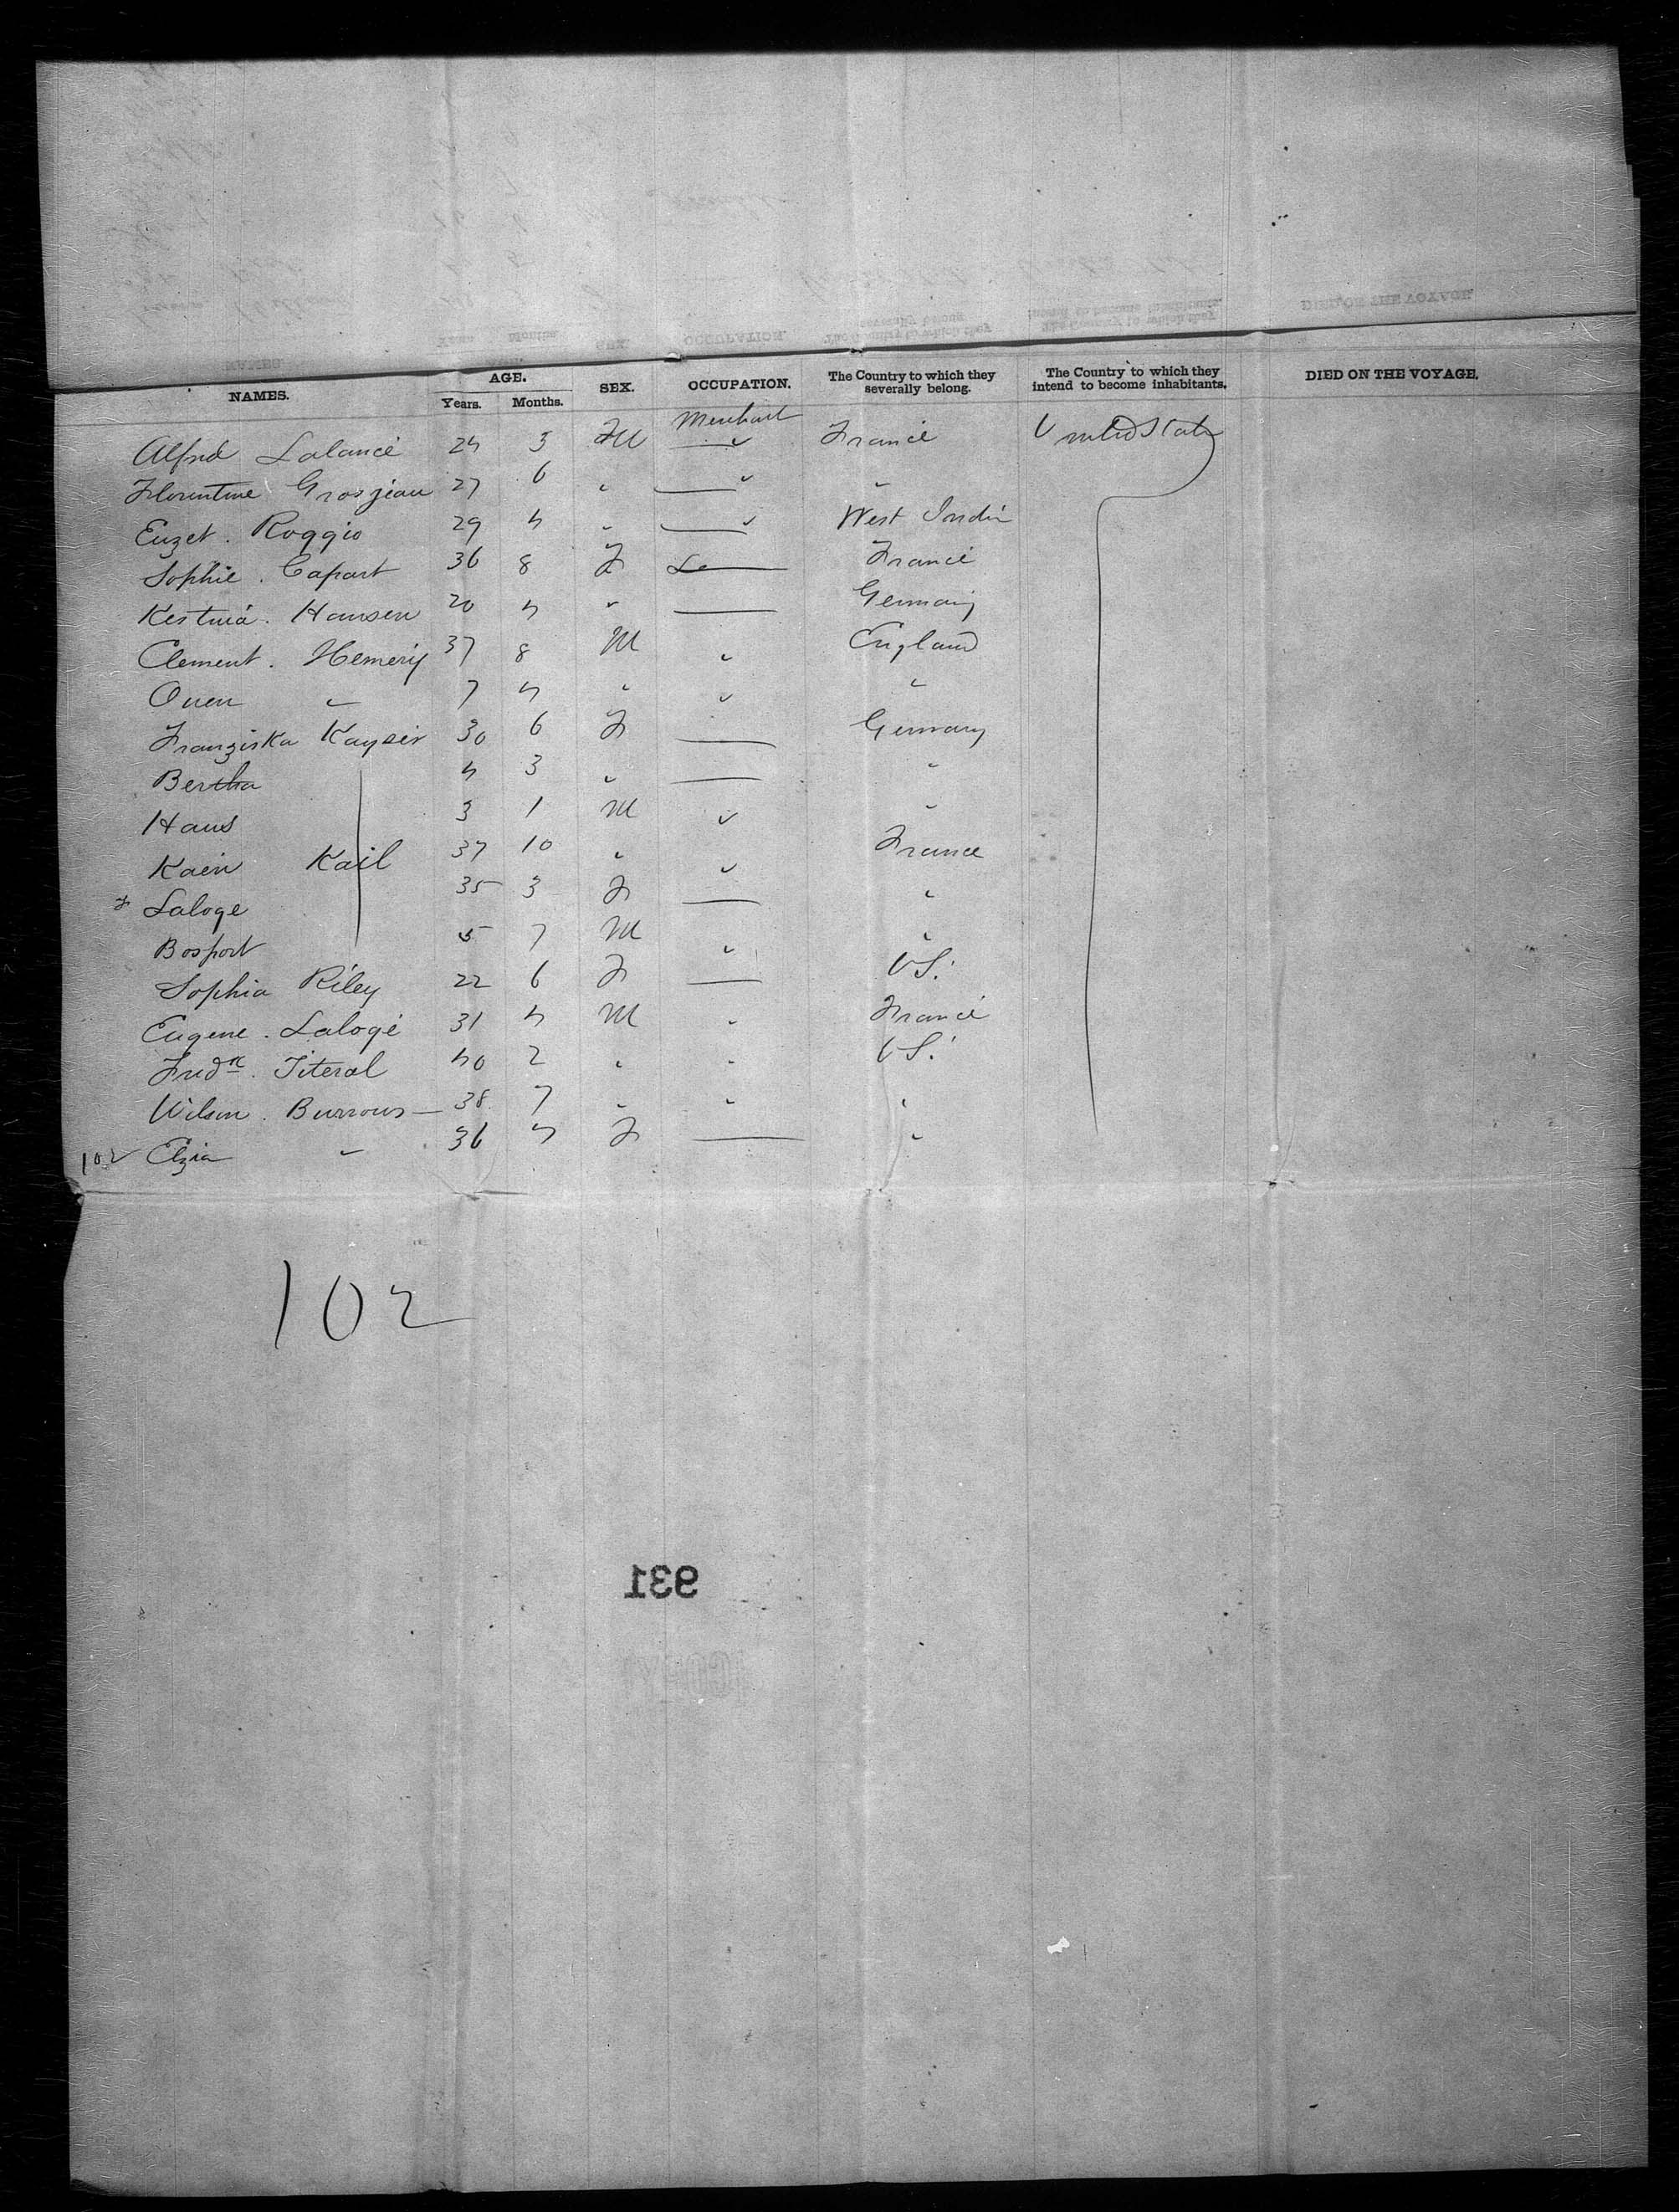 NAMES. AGE. Years. Months. SEX. OCCUPATION. The Country to which they severally belong. The Country to which they intend to become inhabitants. DIED ON THE VOYAGE.
Alfred Lalance 24 3 M Merchant France United States
Florentine Grosjean 27 6 " " "
Euzet. Roggio 29 4 " " West Indie
Sophie. Capart 36 8 F France
Hansen 20 4 " Germany
Clement. Hemery 37 8 M " England
Owen " 7 4 " " "
Franziska Kayser 30 6 F Germany
Bertha 4 3 " "
Hans 3 1 M " "
Kain Kail 37 10 " " France
Laloge 35 3 F "
Bosport 5 7 M " "
Sophia Riley 22 6 F US.
Eugene. Laloge 31 4 M " France
Fredk. Titeral 40 2 " " US.
Wilson. Burrows 38 7 " " "
102 Elzia " 36 4 F "
102
931